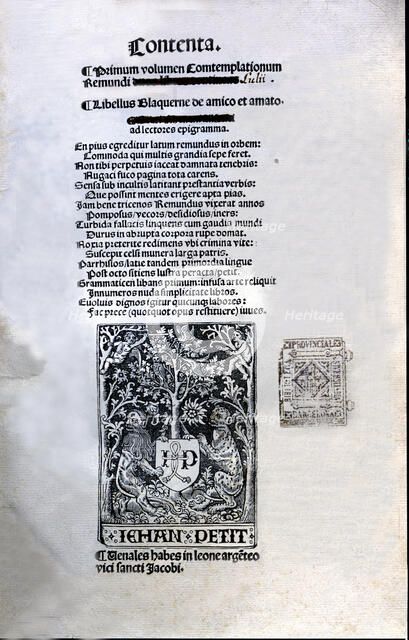 Contenta.
¶Primum volumen Contemplationum
Remundi Lulii.
¶Libellus Blaquerne de amico et amato.
ad lectores epigramma.
En pius egreditur latum remundus in orbem:
Commoda qui multis grandia sepe feret.
Non tibi perpetuis iaceat damnata tenebris:
Nugaci fuco pagina tota carens.
Sensa sub incultis latitant prestantia verbis:
Que possint mentes erigere apta pias.
Jam bene tricenos Remundus vixerat annos
Pomposus/vecors/desidiosus/iners:
Turbida fallacis linquens cum gaudia mundi
Durus in abrupta corpora rupe domat.
Noxia preterite redimens ubi crimina vite:
Suscepit celsi munera larga patris.
Parrhisios/latie tandem primordia lingue
Post octo sitiens lustra peracta/petit.
Grammaticen libans primum: infusa arte reliquit
Innumeros nuda simplicitate libros.
Evoluis dignos igitur quicunq labores:
Fac prece (quotquot opus restituere) iuves.
JP
IEHAN PETIT
¶Uenales habes in leone argēteo
vici sancti Jacobi.
PROVINCIAL
BARCELONA
Heritage